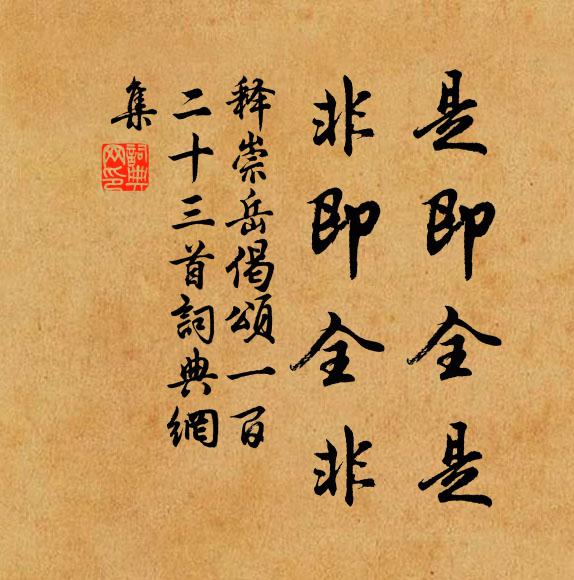 是即全是
非即全非
释崇岳偈頌一百
二十三首詞典網
集
詞典
网印